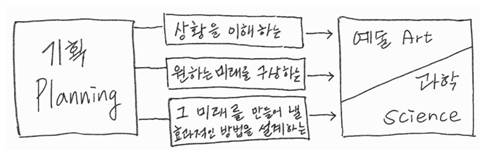 기획
Planning
상황을 이해하는
원하는 미래를 구상하는
그 미래를 만들어 낼
효과적인 방법을 설계하는
예술 Art
과학
Science